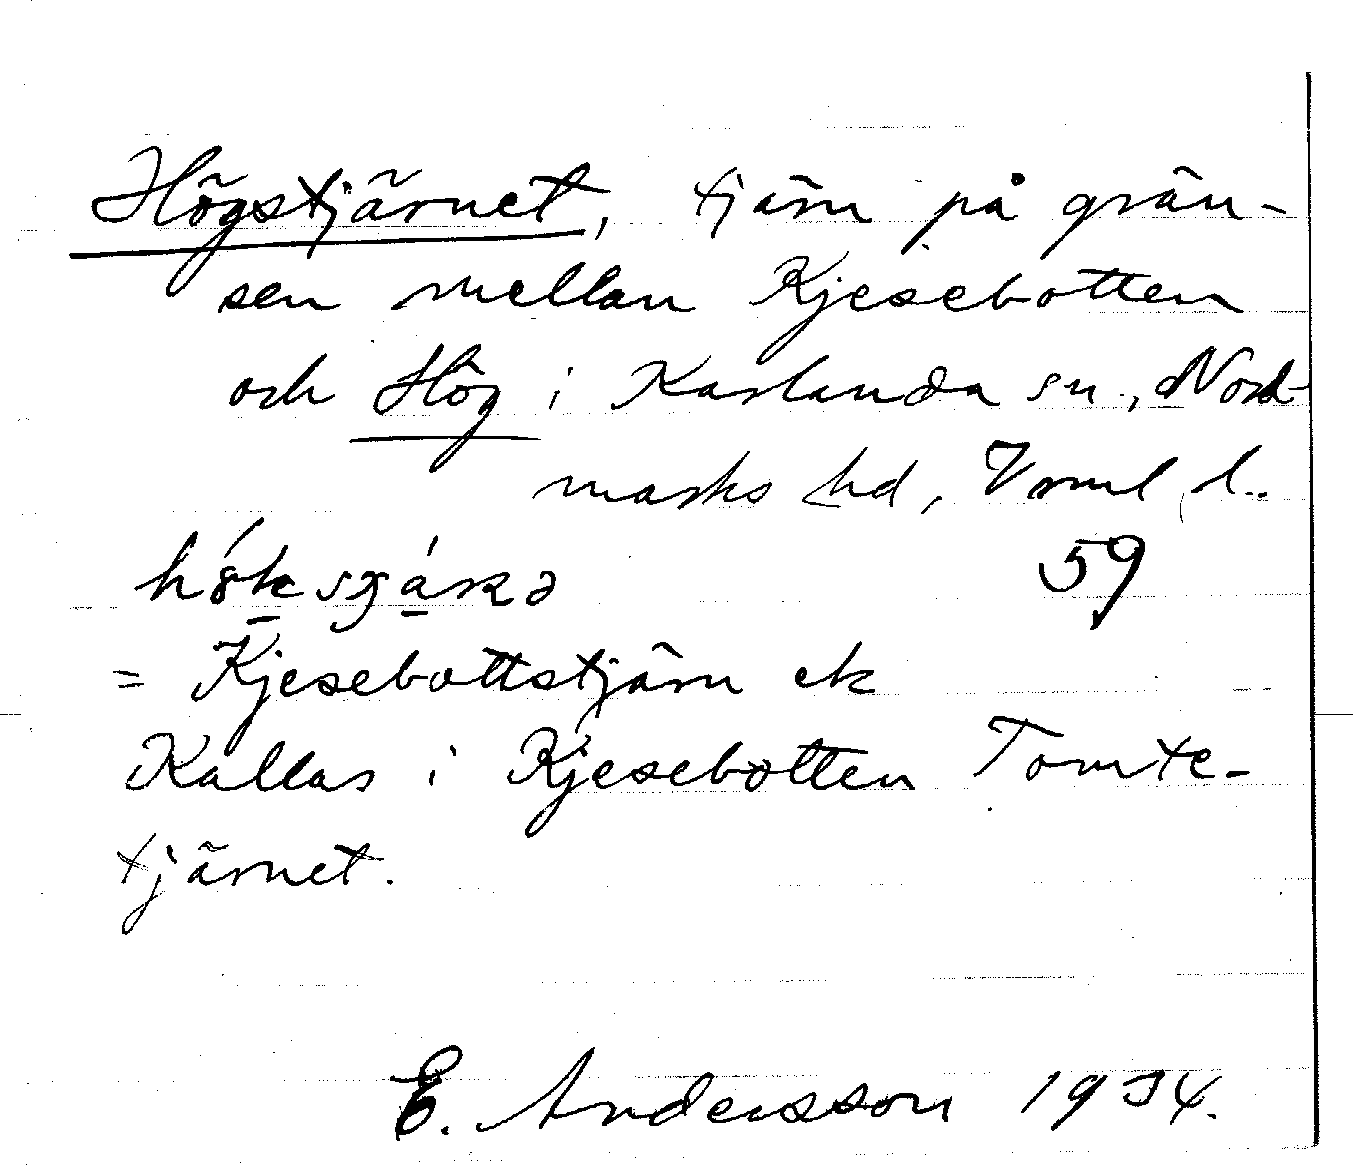 Högstjärnet, tjärn på grän-
sen mellan Kjesebotten
och Hög i Karlanda sn., Nord-
marks hd, Vrml l.
59
= Kjesebottstjärn ek
Kallas i Kjesebotten Tomte-
tjärnet.
E. Andersson 1934.